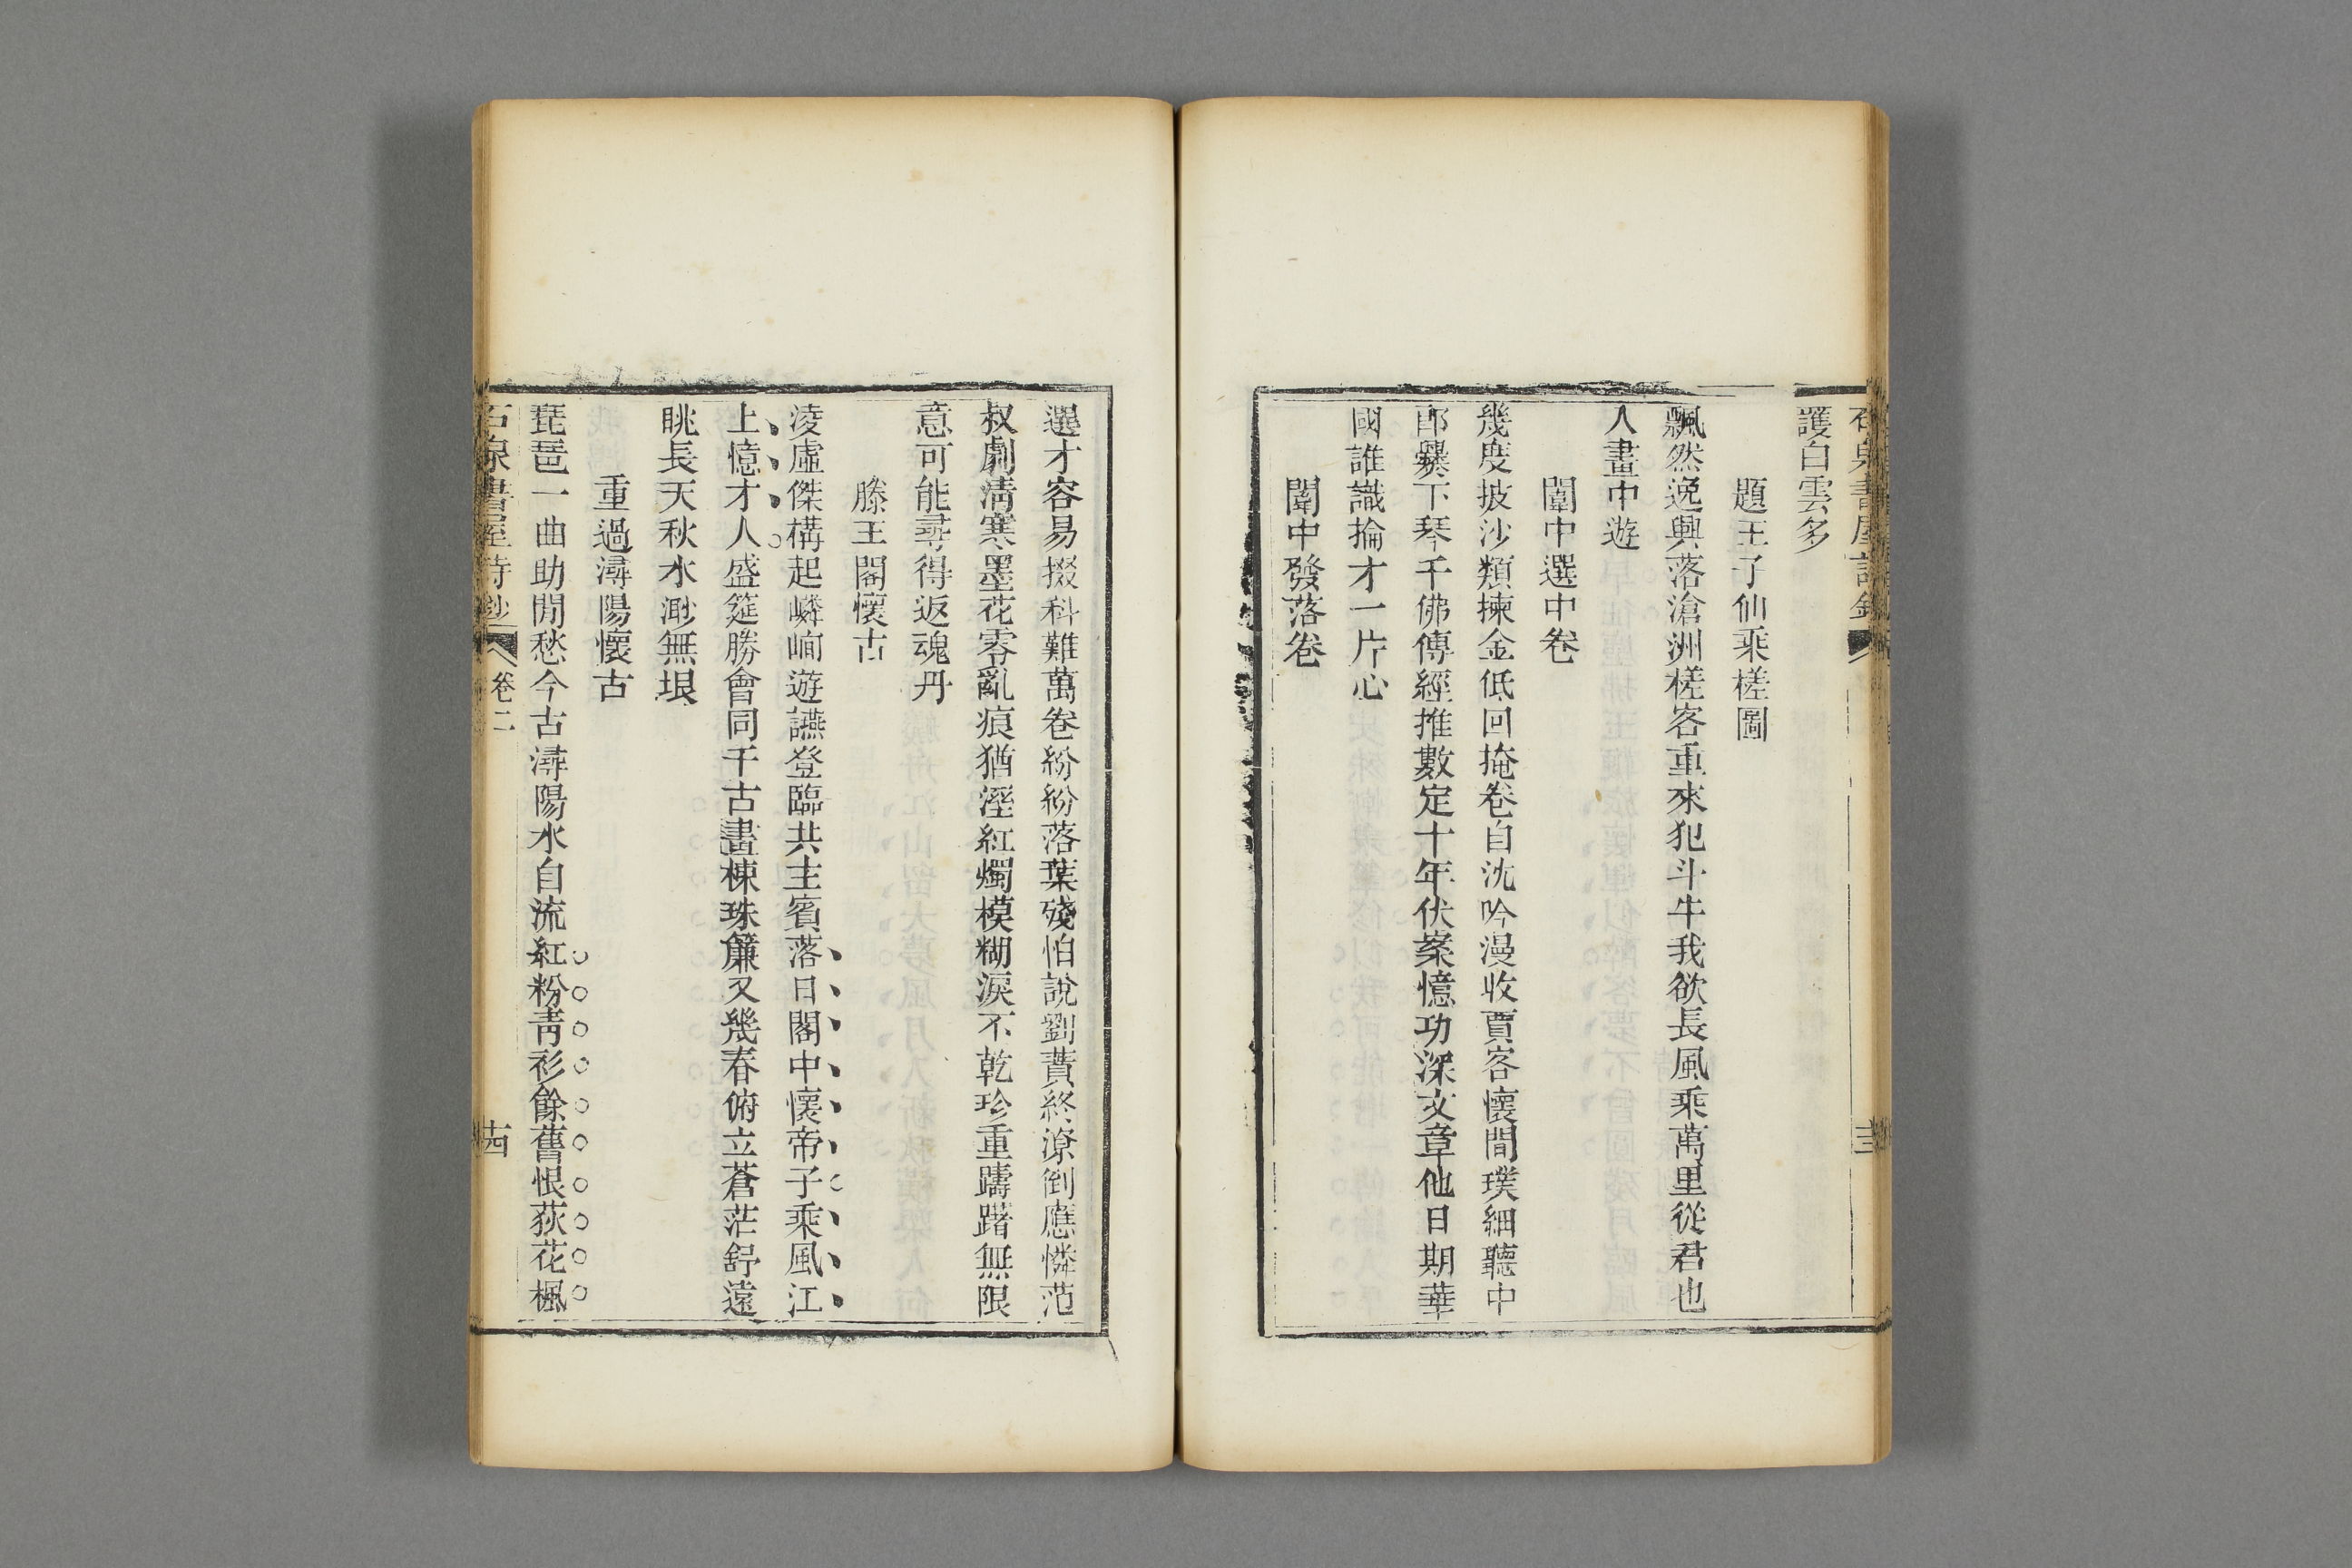 護白雲多
題王子仙乘槎圖
飄然逸興落滄洲槎客重來犯斗牛我欲長風乘萬里從君也
人畫中遊
闈中選中卷
幾度披沙類揀金低回掩卷自沈吟漫收賈客懷間璞細聽中
郎爨下琴千佛傳經推數定十年伏案憶功深文章他日期華
國誰識掄才一片心
闈中發落卷
選才容易掇科難萬卷紛紛落葉殘怕說劉蕡終潦倒應憐范
叔劇淸寒墨花零亂痕猶溼紅燭模糊淚不乾珍重躊躇無限
意可能尋得返魂丹
滕王閣懷古
淩虛傑構起嶙峋遊讌登臨共主賓落日閣中懷帝子乘風江
上憶才人盛筵勝會同千古畫棟珠簾又幾春俯立蒼茫舒遠
眺長天秋水渺無垠
重過潯陽懷古
琵琶一曲助閒愁今古潯陽水自流紅粉靑衫餘舊恨荻花楓
石泉書屋詩鈔 卷二 十四